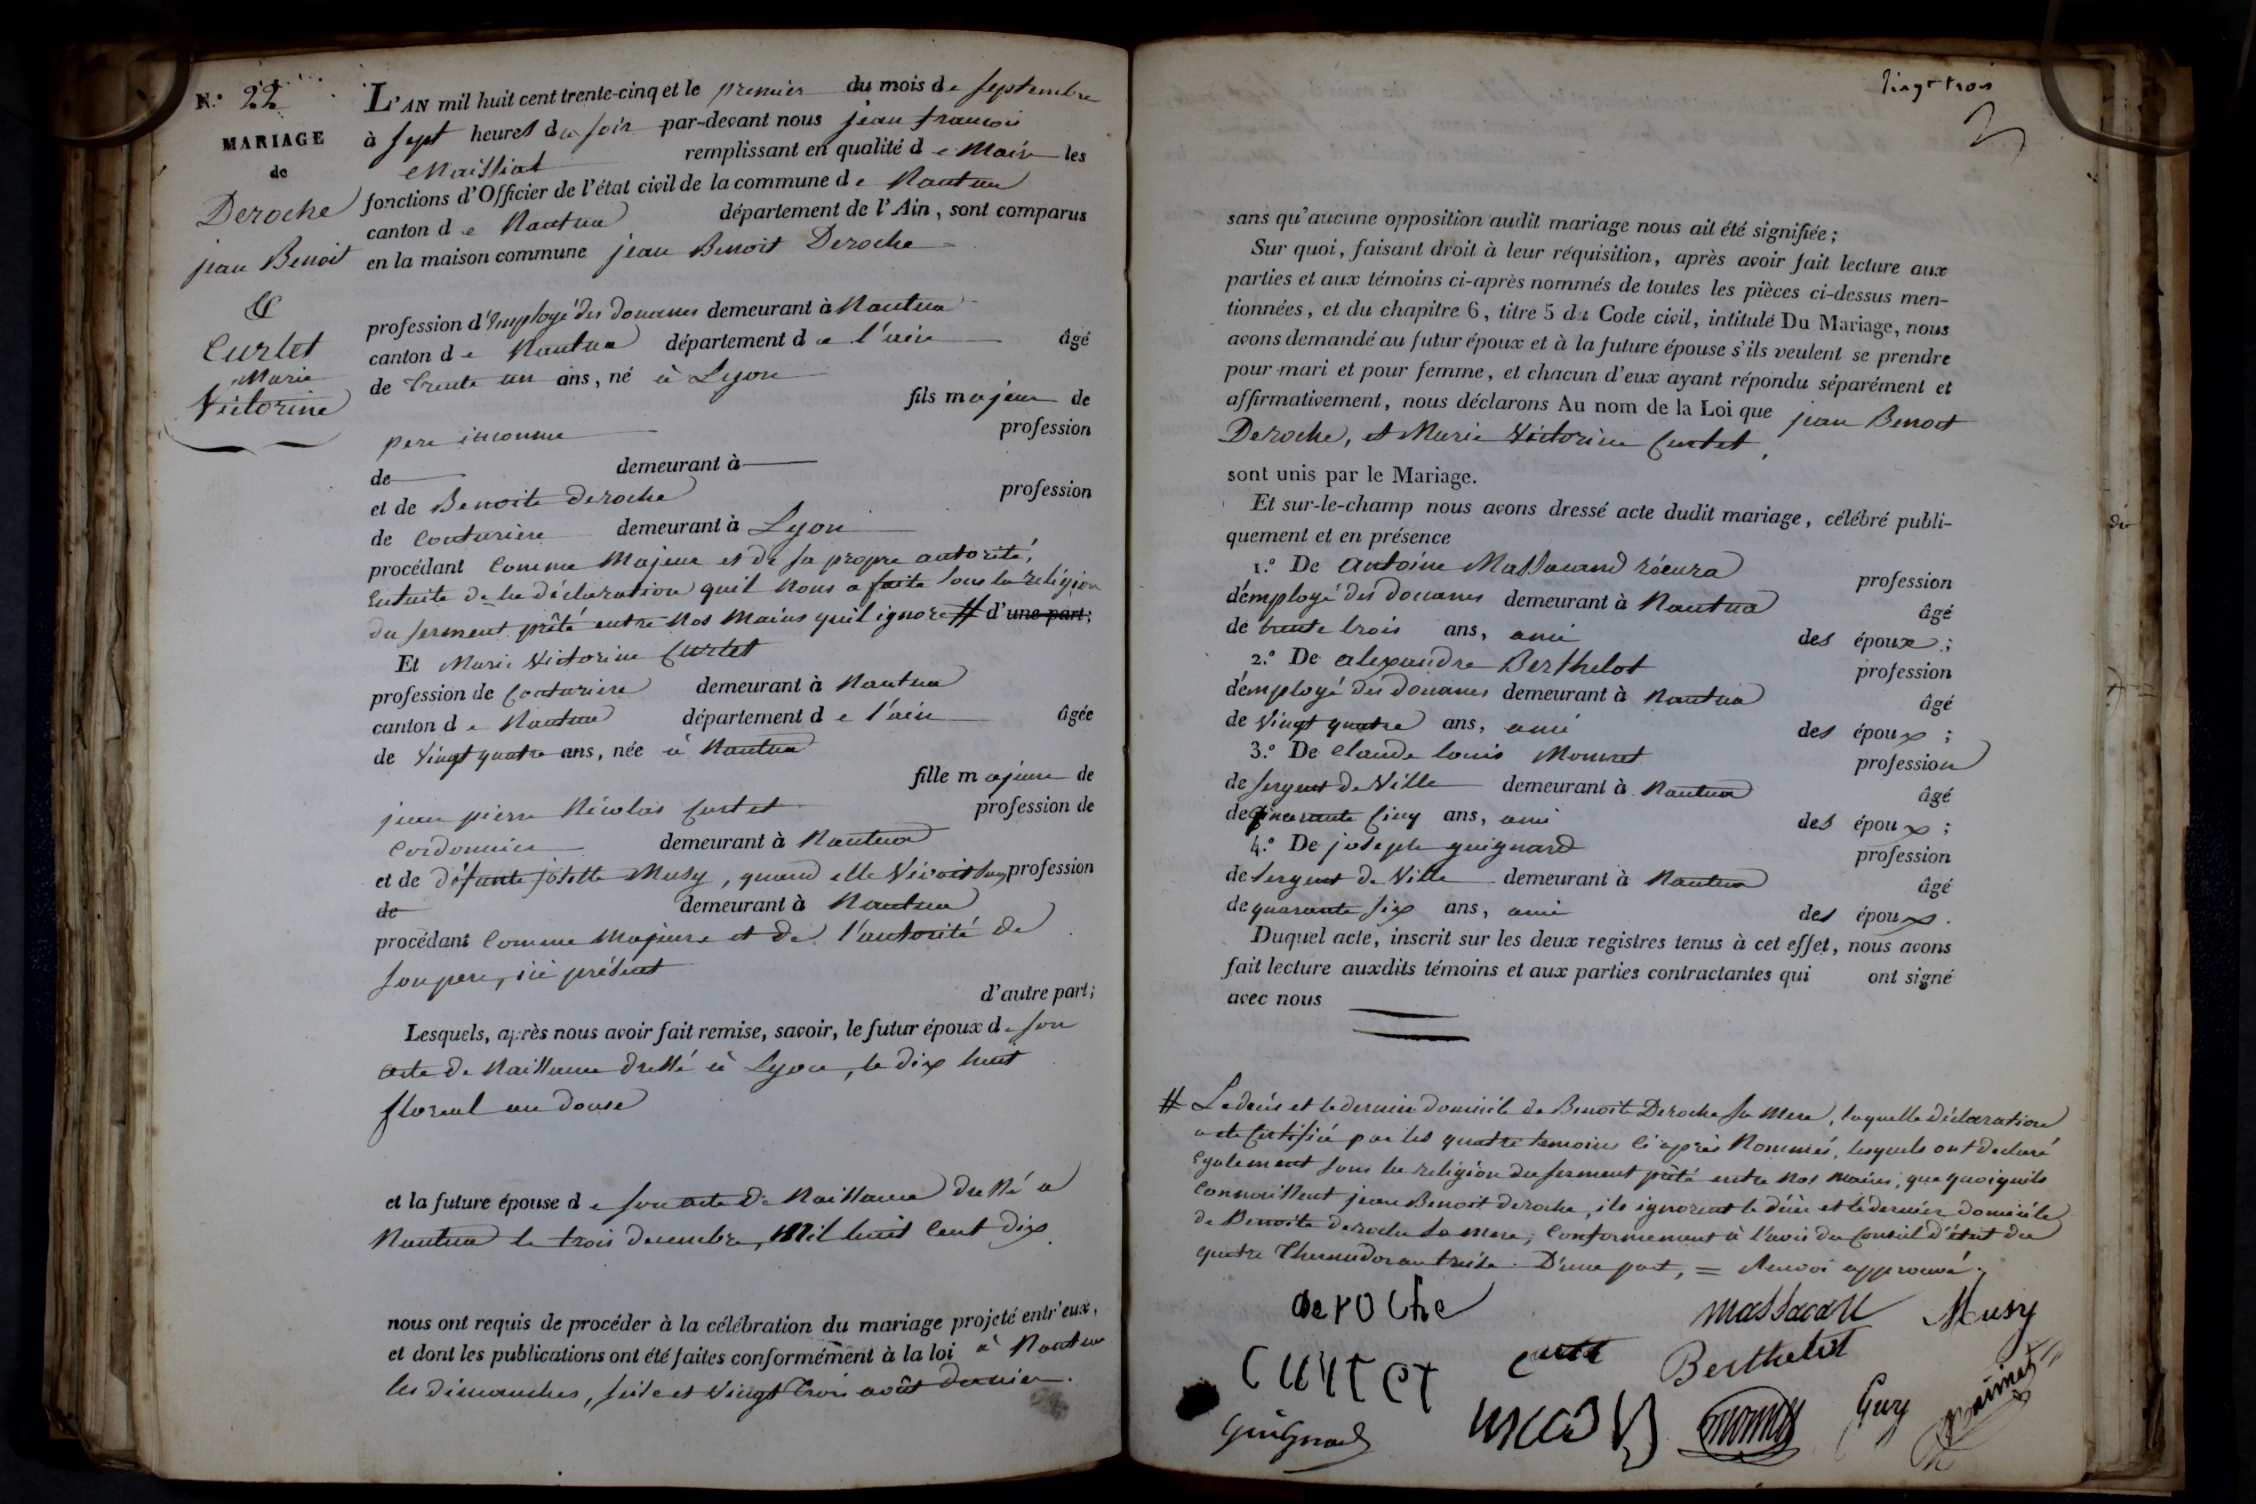 N.° 22
MARIAGE
de
Deroche
jean Benoit
&
Curtet
Marie
Victorine
L'AN mil huit cent trente-cinq et le premier du mois de septembre
à sept heures du soir par-devant nous jean francois
Maissiat remplissant en qualité de Maire les
fonctions d'Officier de l'état civil de la commune de Nantua
canton de Nantua département de l'Ain, sont comparus
en la maison commune jean Benoit Deroche
profession d'Employé des douanes demeurant à Nantua
canton de Nantua département de l'ain âgé
de trente un ans, né à Lyon
fils majeur de
pere inconnu profession
de demeurant à
et de Benoite deroche profession
de couturière demeurant à Lyon
procédant comme Majeur et de sa propre autorité,
Ensuite de la déclaration quil nous a faite sous la religion
du serment prêté entre nos mains quil ignore # d'une part;
Et Marie Victorine Curtet
profession de Couturiere demeurant à Nantua
canton de Nantua département de l'ain âgée
de vingt quatre ans, née à Nantua
fille majeure de
jean pierre Nicolas Curtet profession de
Cordonnier demeurant à Nantua
et de défunte josette Musy, quand elle vivoit sans profession
de demeurant à Nantua
procédant comme Majeure et de l'autorité de
son pere, ici présent
d'autre part;
Lesquels, après nous avoir fait remise, savoir, le futur époux de son
acte de Naissance dressé à Lyon, le dix huit
floreal an douse
et la future épouse de son acte de Naissance dressé a
Nantua le trois decembre, Mil huit cent dix.
nous ont requis de procéder à la célébration du mariage projeté entr'eux,
et dont les publications ont été faites conformément à la loi à Nantua
les dimanches, seize et vingt trois août dernier.
vingt trois
sans qu'aucune opposition audit mariage nous ait été signifiée;
Sur quoi, faisant droit à leur réquisition, après avoir fait lecture aux
parties et aux témoins ci-après nommés de toutes les pièces ci-dessus men-
tionnées, et du chapitre 6, titre 5 du Code civil, intitulé Du Mariage, nous
avons demandé au futur époux et à la future épouse s'ils veulent se prendre
pour mari et pour femme, et chacun d'eux ayant répondu séparément et
affirmativement, nous déclarons Au nom de la Loi que jean Benoit
Deroche, et Marie Victorine Curtet,
sont unis par le Mariage.
Et sur-le-champ nous avons dressé acte dudit mariage, célébré publi-
quement et en présence
1.° De antoine Massacand profession
d'employé des douanes demeurant à Nantua âgé
de trente trois ans, ami des époux;
2.° De alexandre Berthelot profession
d'employé des douanes demeurant à Nantua âgé
de vingt quatre ans, ami des époux;
3.° De Claude louis Monnet profession
de sergent de Ville demeurant à Nantua âgé
de quarante cinq ans, ami des époux;
4.° De joseph guignard profession
de sergent de Ville demeurant à Nantua âgé
de quarante six ans, ami des époux.
Duquel acte, inscrit sur les deux registres tenus à cet effet, nous avons
fait lecture auxdits témoins et aux parties contractantes qui ont signé
avec nous
# Le décès et le dernier domicile de Benoite Deroche sa Mere, laquelle déclaration
a été certifiée par les quatre temoins ci après Nommés, lesquels ont declaré
Egalement sous la religion du serment prêté entre nos mains, que quoiquils
Connoissent jean Benoit deroche, ils ignorent le décès et le dernier domicile
de Benoite deroche sa mere; Conformement à l'avis du Conseil d'état du
quatre thermidor an treise. D'une part, = Renvoi approuvé.
deroche
Massacan
Musy
Curtet
Berthelot
guignard
monnet
Guy